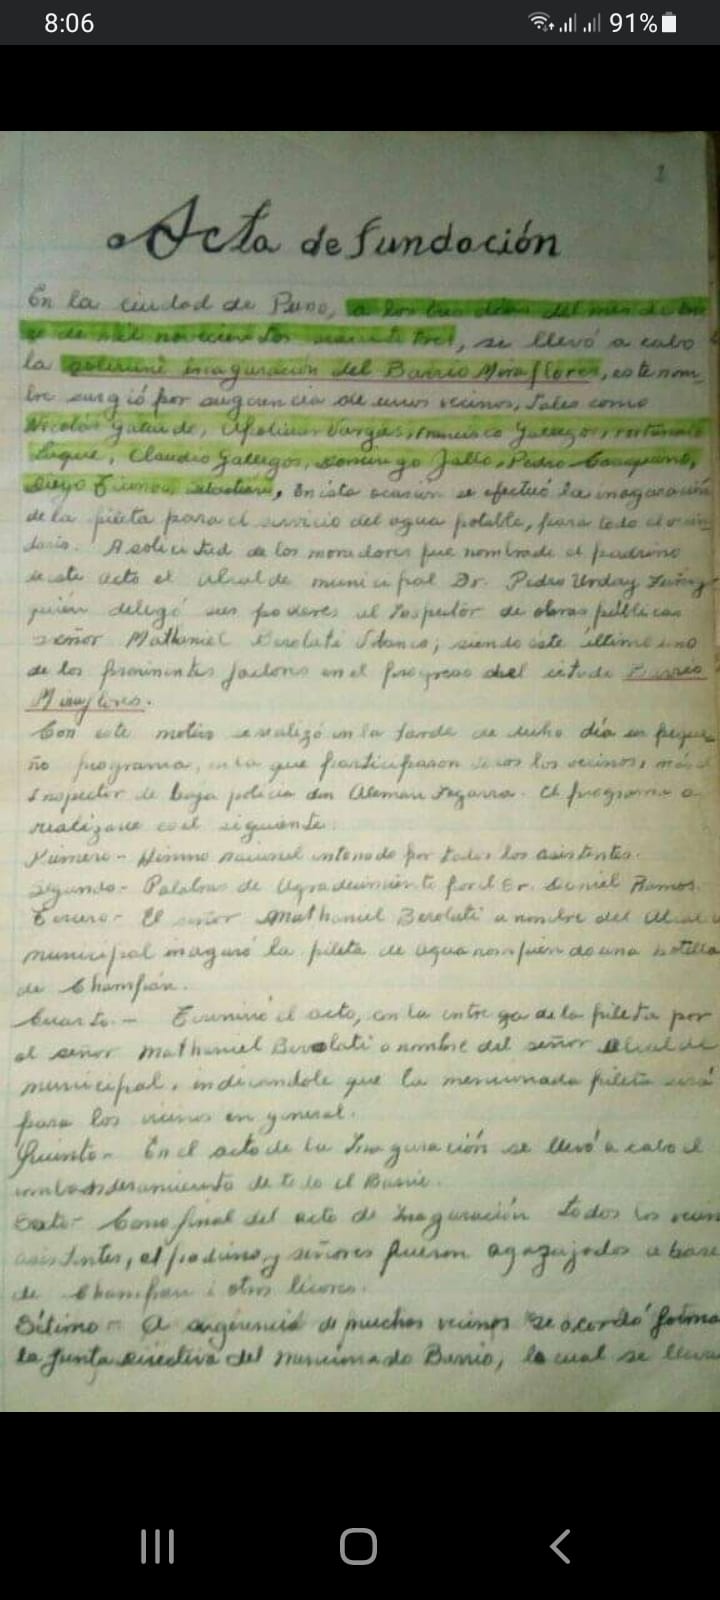 8:06
91%
1
Acta de Fundación
En la ciudad de Puno, a los tres días del mes de
de mil novecientos sesenta tres, se llevó a cabo
la solemne inaguración del Barrio Miraflores, este nom-
bre surgió por sugerencia de unos vecinos, tales como
Nicolás Apolinar Vargas, Francisco Gallegos, Fortunato
Luque, Claudio Gallegos, Domingo Jallo, Pedro
Diego Ticona, En esta ocasión se efectuó la inaguración
de la pileta para el servicio del agua potable, para todo el
dario. A solicitud de los moradores fue nombrado el padrino
de este acto el Alcalde municipal Dr. Pedro Urday
quién delegó sus poderes al Inspector de obras públicas
señor Mathaniel Berolati; siendo este último uno
de los prominentes factores en el progreso del citado Barrio
Miraflores.
Con este motivo se realizó en la tarde de dicho día un peque-
ño programa, en la que participaron todos los vecinos, más el
Inspector de baja policía don Aleman Segarra. El programa a
realizarse es el siguiente:
Primero- Himno nacional entonado por todos los asistentes.
Segundo- Palabras de agradecimiento por el Sr. Daniel Ramos.
Tercero- El señor Mathaniel Berolati a nombre del
municipal inaguró la pileta de agua rompiendo una botella
de Champán.
Cuarto.- Terminó el acto, con la entrega de la pileta por
el señor Mathaniel Berolati a nombre del señor alcalde
municipal, indicandole que la mencionada pileta será
para los vecinos en general.
Quinto- En el acto de la Inaguración se llevó a cabo el
de todo el Barrio.
Sexto- Como final del acto de Inaguración todos los
asistentes, el padrino y señores fueron agazajados a base
de Champan i otros licores.
Sétimo- A sugerencia de muchos vecinos se acordó
la Junta directiva del mencionado Barrio, la cual se